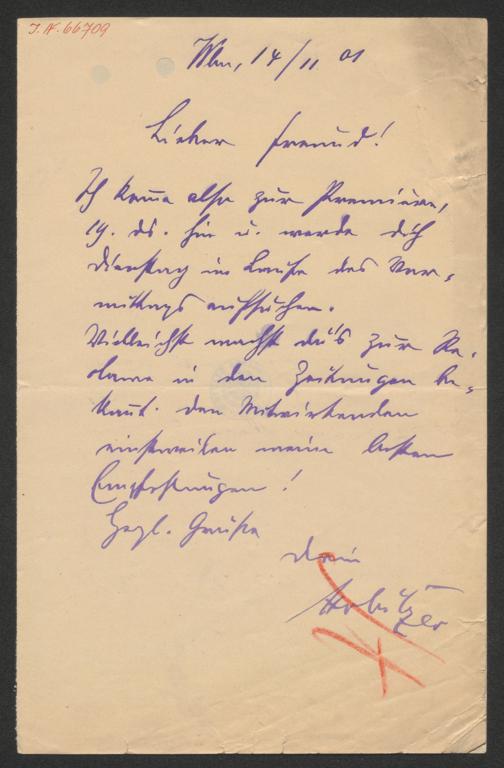 I. N. 66709
Wien, 14/11 01
Lieber Freund!
Ich komme also zur Premiere,
19. ds. hin u. werde dich
Dienstag im Laufe des Vor-
mittags aufsuchen.
Vielleicht machst du's zur Re-
clame in den Zeitungen be-
kannt. Den Mitwirkenden
einstweilen meine besten
Empfehlungen!
Herzl. Grüße
dein